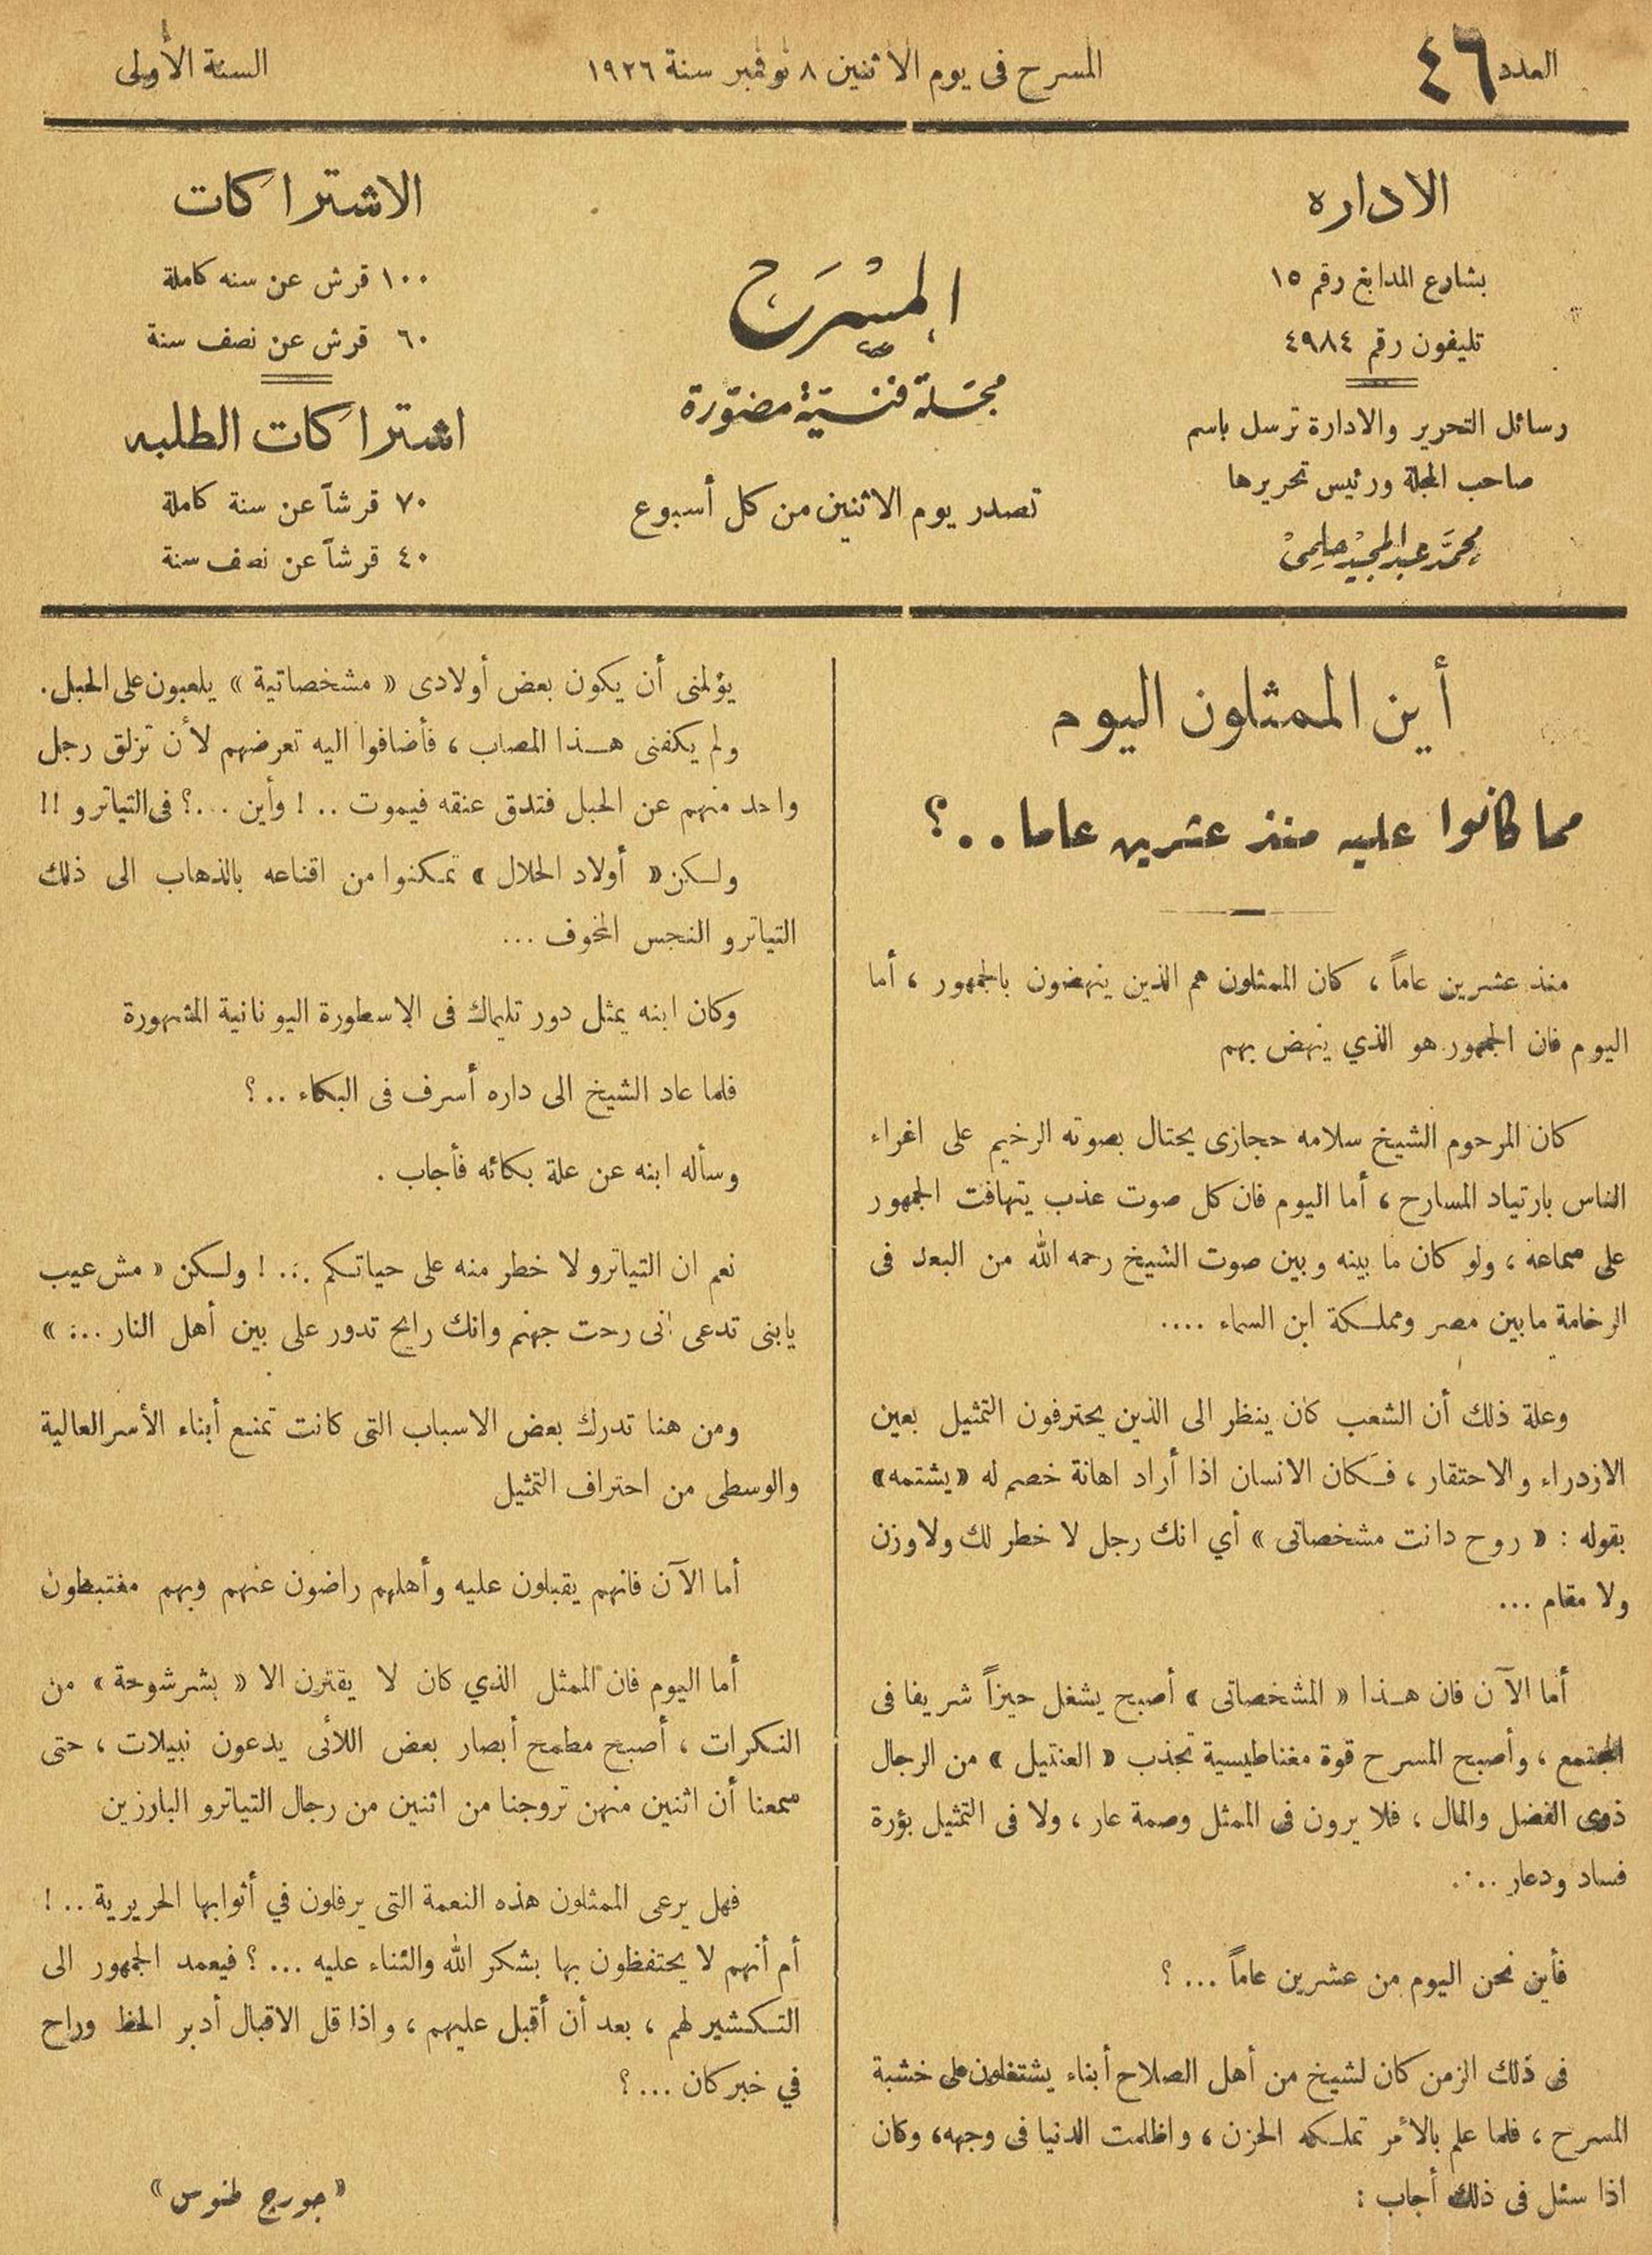 العدد ٤٦
المسرح فى يوم الاثنين ٨ نوفمبر سنة ١٩٢٦
السنة الأولى
الاداره
بشارع المدابغ رقم ١٥
تليفون رقم ٤٩٨٤
رسائل التحرير والادارة ترسل باسم
صاحب المجلة ورئيس تحريرها
محمد عبد المجيد حلمى
المسرح
مجلة فنية مصورة
تصدر يوم الاثنين من كل أسبوع
الاشتراكات
١٠٠ قرش عن سنه كاملة
٦٠ قرش عن نصف سنة
اشتراكات الطلبه
٧٠ قرشاً عن سنة كاملة
٤٠ قرشاً عن نصف سنة
أين الممثلون اليوم
مما كانوا عليه منذ عشرين عاما..؟
منذ عشرين عاماً ، كان الممثلون هم الذين ينهضون بالجمهور ، أما
اليوم فان الجمهور هو الذي ينهض بهم
كان المرحوم الشيخ سلامه حجازى يحتال بصوته الرخيم على اغراء
الناس بارتياد المسارح ، أما اليوم فان كل صوت عذب يتهافت الجمهور
على سماعه ، ولو كان ما بينه وبين صوت الشيخ رحمه الله من البعد فى
الرخامة مابين مصر ومملكة ابن السماء ....
وعلة ذلك أن الشعب كان ينظر الى الذين يحترفون التمثيل بعين
الازدراء والاحتقار ، فكان الانسان اذا أراد اهانة خصم له «يشتمه»
بقوله : « روح دانت مشخصاتى » أي انك رجل لا خطر لك ولا وزن
ولا مقام ...
أما الآن فان هذا « المشخصاتى » أصبح يشغل حيزاً شريفا فى
المجتمع ، وأصبح المسرح قوة مغناطيسية تجذب « العنتيل » من الرجال
ذوى الفضل والمال ، فلا يرون فى الممثل وصمة عار ، ولا فى التمثيل بؤرة
فساد ودعار ...
فأين نحن اليوم من عشرين عاماً ... ؟
فى ذلك الزمن كان لشيخ من أهل الصلاح أبناء يشتغلون على خشبة
المسرح ، فلما علم بالأمر تملكه الحزن ، واظلمت الدنيا فى وجهه، وكان
اذا سئل فى ذلك أجاب :
يؤلمنى أن يكون بعض أولادى « مشخصاتية » يلعبون على الحبل.
ولم يكفنى هذا المصاب ، فأضافوا اليه تعرضهم لأن تزلق رجل
واحد منهم عن الحبل فتدق عنقه فيموت .. ! وأين ...؟ فى التياترو !!
ولكن « أولاد الحلال » تمكنوا من اقناعه بالذهاب الى ذلك
التياترو النجس المخوف ...
وكان ابنه يمثل دور تليماك فى الاسطورة اليونانية المشهورة
فلما عاد الشيخ الى داره أسرف فى البكاء ..؟
وسأله ابنه عن علة بكائه فأجاب .
نعم ان التياترو لا خطر منه على حياتكم ... ! ولكن « مش عيب
يابنى تدعى انى رحت جهنم وانك رايح تدور على بين أهل النار ... »
ومن هنا تدرك بعض الاسباب التى كانت تمنع أبناء الأسر العالية
والوسطى من احتراف التمثيل
أما الآن فانهم يقبلون عليه وأهلهم راضون عنهم وبهم مغتبطون
أما اليوم فان الممثل الذي كان لا يقترن الا « بشرشوحة » من
النكرات ، أصبح مطمح أبصار بعض اللائى يدعون نبيلات ، حتى
سمعنا أن اثنين منهن تزوجنا من اثنين من رجال التياترو البارزين
فهل يرعى الممثلون هذه النعمة التى يرفلون في أثوابها الحريرية... !
أم أنهم لا يحتفظون بها بشكر الله والثناء عليه ... ؟ فيعمد الجمهور الى
التكشير لهم ، بعد أن أقبل عليهم ، واذا قل الاقبال أدبر الحظ وراح
في خبر كان ... ؟
«جورج طنوس»